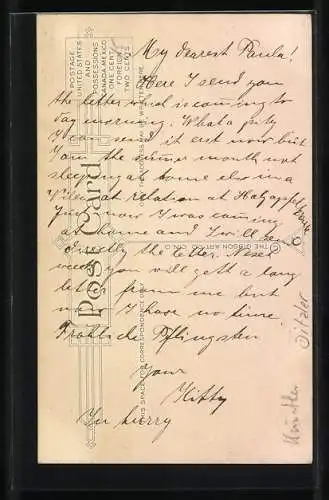 My dearest Paula!
Here I send you
the letter which is coming to
day morning. What a pity
I can send it erst now but
I am the summer month not
sleeping at home else in a
at relation at
Just now I was coming
at home and I will
directly the letter. Next
week you will gett a long
letter from me but
now I have no time.
Fröhliche Pfingsten
Your
Kitty
In hurry
Künstler
Post Card
POSTAGE
UNITED STATES
AND
POSSESSIONS
CANADA, MEXICO
ONE CENT
FOREIGN
TWO CENTS
THIS SPACE FOR CORRESPONDENCE
THE ADDRESS MAY BE WRITTEN HERE
© THE GIBSON ART CO. CIN. O.